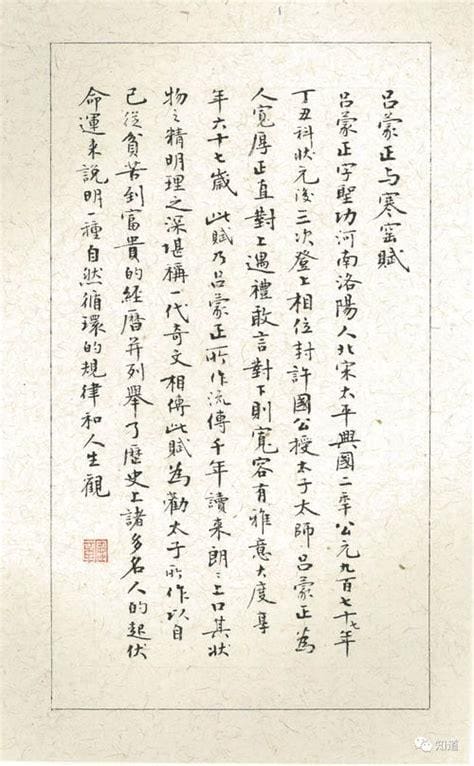 吕蒙正与寒窑賦
吕蒙正字聖功河南洛陽人北宋太平興國二年公元九百七十七年
丁丑科狀元後三次登上相位封許國公授太子太師吕蒙正為
人寬厚正直對上遇禮敢言對下則寬容有雅意大度享
年六十七歲 此賦乃吕蒙正所作流傳千年讀来朗〻上口其狀
物之精明理之深堪稱一代奇文相傳此賦為勸太子所作以自
己從貧苦到富貴的經曆并列舉了歷史上諸多名人的起伏
命運来說明一種自然循環的規律和人生觀
知道